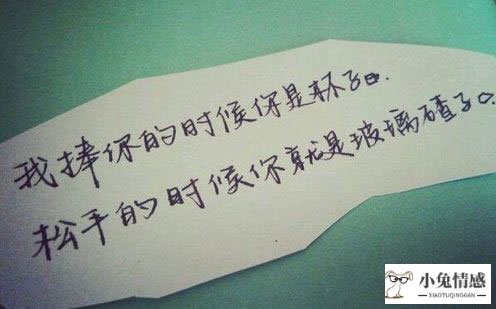 我捧你的时候你是杯子.
松手的时候你就是玻璃碴子.
小兔情感
XIAOTUQINGGAN